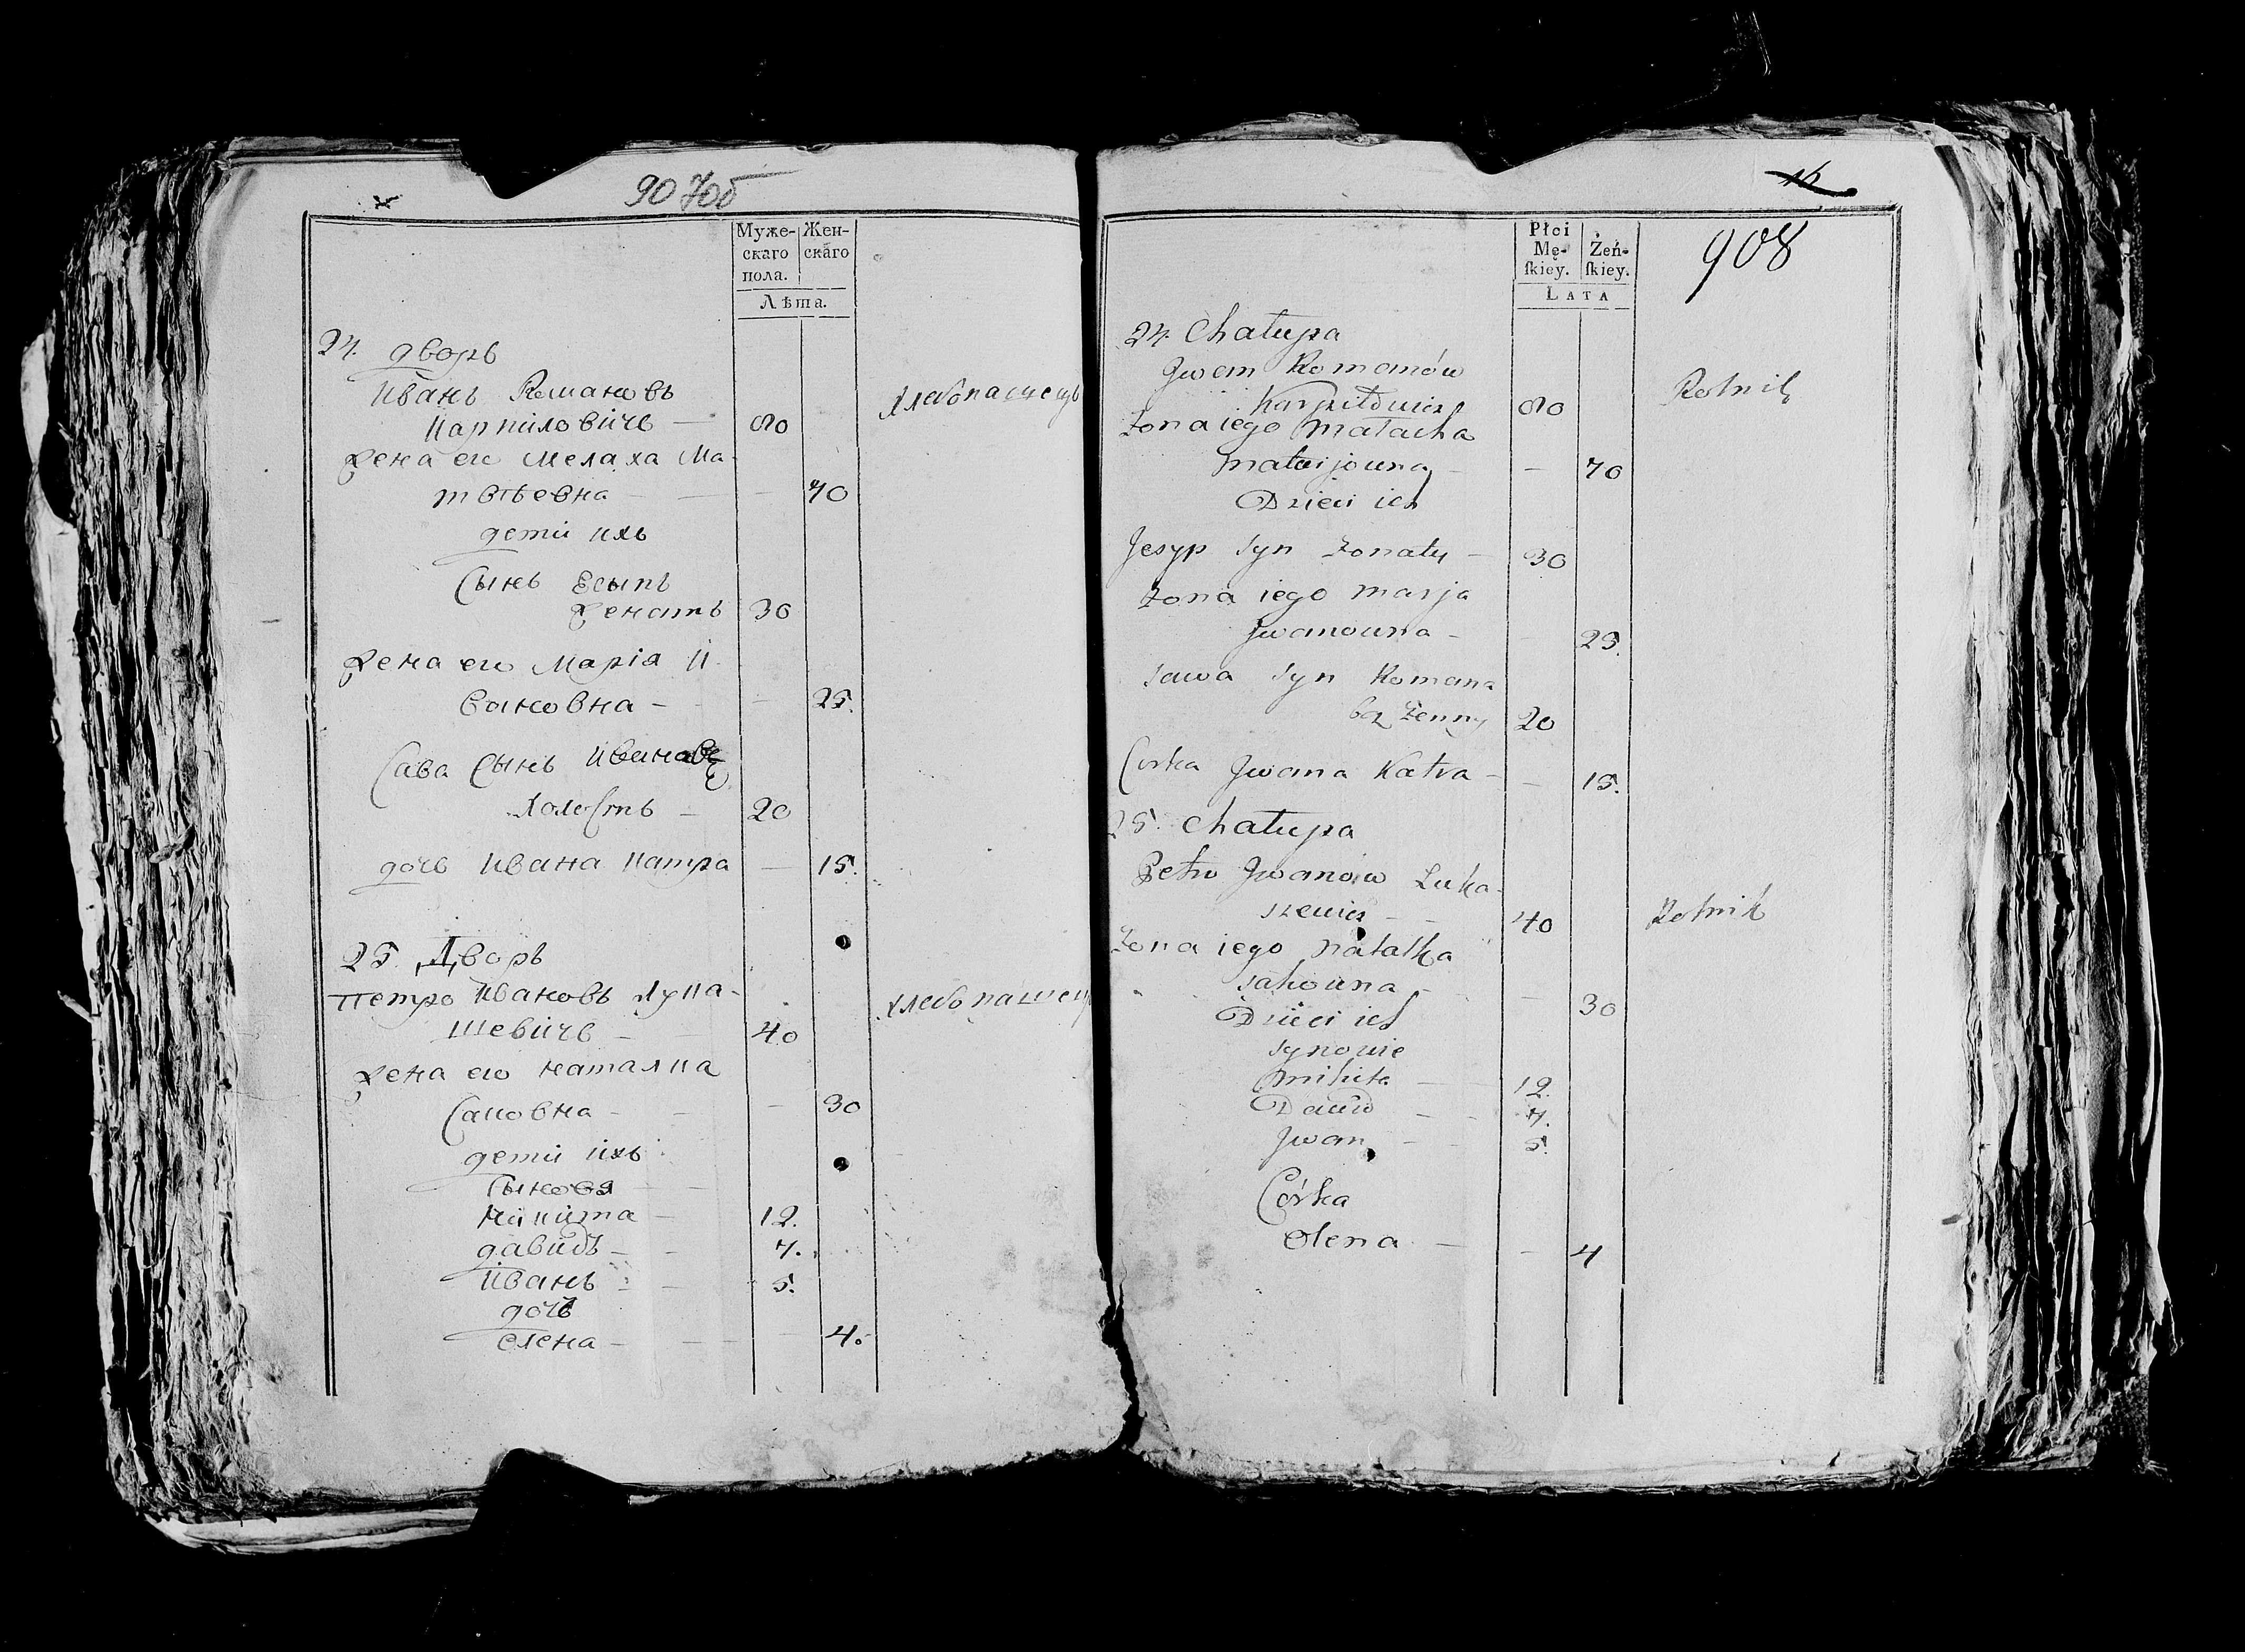 907об
Муже-
скаго
пола.
Жен-
скаго
Лѣта.
24. дворъ
Иванъ Романовъ
Карпиловичъ — 80
хлебопашецъ
жена ево Мелаха Ма-
твѣевна — — — 70
дети ихъ
Сынъ Есыпъ
женатъ 30
жена ево Марiя И-
вановна — — 25.
Сава Сынъ Ивановъ
холостъ — 20
дочь Ивана Катра — 15.
25. Дворъ
Петро Ивановъ Лука-
шевичъ — 40
хлебопашец
жена ево наталка
Саковна — — 30
дети ихъ
Сыновя — —
Никита — 12.
давидъ — — 7.
Иванъ — — 5.
дочь
елена — — — — 4.
16
908
Płci
Mę-
ſkiey.
Żeń-
ſkiey.
LATA
24. Chałupa
Jwan Romanów
Karpiłowicz 80
Rolnik
Zona iego Małacha
Matwijowna — — 70
Dzieci ich
Jesyp syn Zonaty — 30
Zona iego Marja
Jwanowna — — 25.
Sawa syn Romana
bez Zenny 20
Corka Jwana Katra — — 15.
25. Chałupa
Petro Jwanów Łuka-
szewicz — — 40
Rolnik
Zona iego Natałka
Sakowna — — 30
Dzieci ich
Synowie
Mikita — — 12.
Dawid — — 7.
Jwan — — 5.
Córka
Olena — — 4